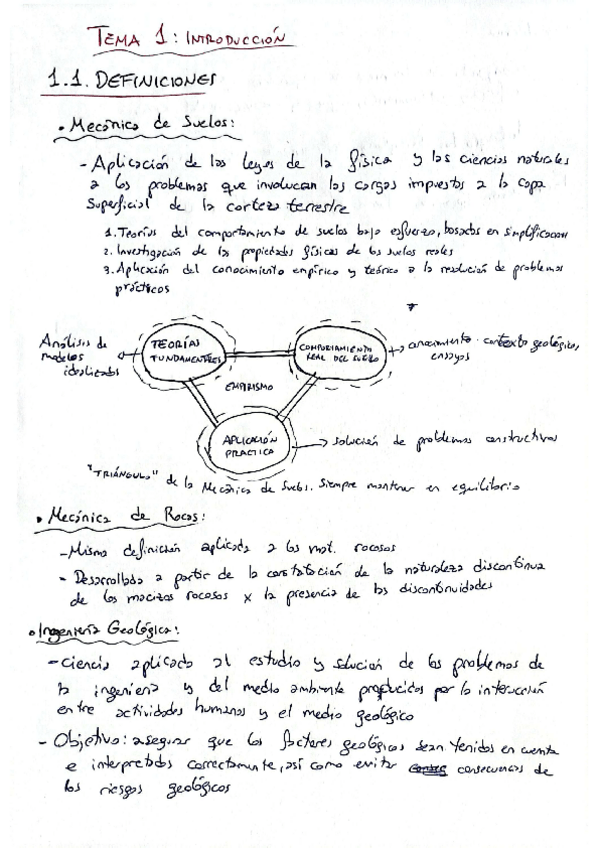 TEMA 1: INTRODUCCIÓN
1.1. DEFINICIONES
• Mecánica de Suelos:
- Aplicación de las leyes de la física y las ciencias naturales
a los problemas que involucran las cargas impuestas a la capa
superficial de la corteza terrestre
1. Teorías del comportamiento de suelos bajo esfuerzo, basados en simplificacion
2. Investigación de las propiedades físicas de los suelos reales
3. Aplicación del conocimiento empírico y teórico a la resolución de problemas
prácticos
Análisis de
modelos
idealizados
TEORÍAS
FUNDAMENTALES
COMPORTAMIENTO
REAL DEL SUELO
conocimiento contexto geológico,
ensayos
EMPIRISMO
APLICACIÓN
PRACTICA
solución de problemas constructivos
"TRIÁNGULO" de la Mecánica de Suelos. Siempre mantener en equilibrio
• Mecánica de Rocas:
- Misma definición aplicada a los mat. rocosos
- Desarrollada a partir de la constatación de la naturaleza discontinua
de los macizos rocosos x la presencia de las discontinuidades
• Ingeniería Geológica:
- Ciencia aplicada al estudio y solución de los problemas de
la ingeniería y del medio ambiente producidos por la interacción
entre actividades humanas y el medio geológico
- Objetivo: asegurar que los factores geológicos sean tenidos en cuenta
e interpretados correctamente, así como evitar consecuencias de
los riesgos geológicos